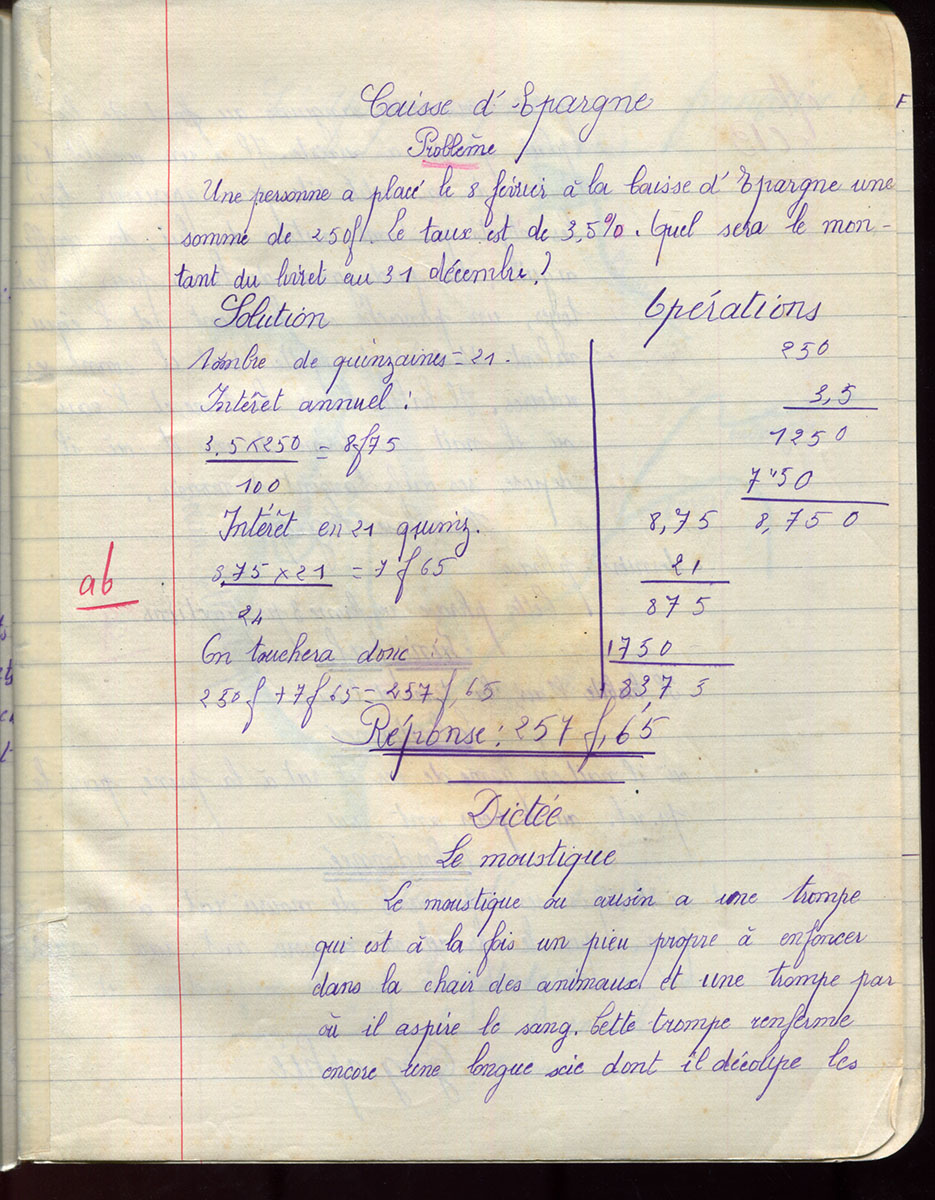 Caisse d'Epargne
Problème
Une personne a placé le 8 février à la Caisse d'Epargne une
somme de 250f. Le taux est de 3,5%. Quel sera le mon-
tant du livret au 31 décembre?
Solution
Nombre de quinzaines = 21.
Intérêt annuel :
3,5 x 250 = 8f75
100
Intérêt en 21 quinz.
8,75 x 21 = 7f65
24
On touchera donc
250f + 7f65 = 257f,65
Opérations
250
3,5
1250
750
8,750
8,75
21
875
1750
18375
Réponse : 257f,65
ab
Dictée
Le moustique
Le moustique ou cusin a une trompe
qui est à la fois un pieu propre à enfoncer
dans la chair des animaux et une trompe par
où il aspire le sang. Cette trompe renferme
encore une longue scie dont il découpe les
F